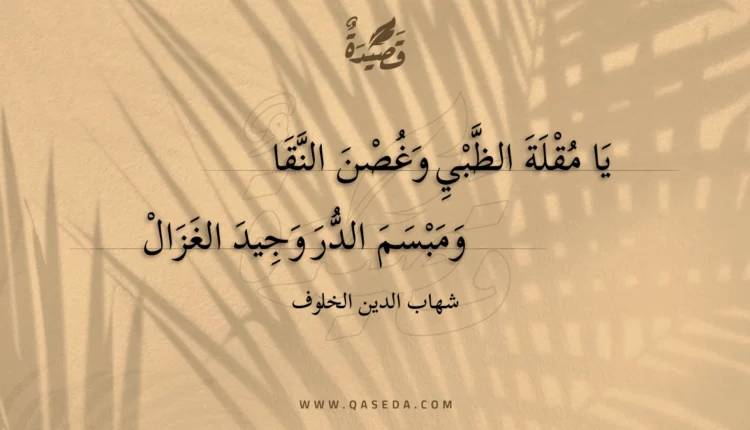 قَصِيدَةٌ
يَا مُقْلَةَ الظَّبْيِ وَغُصْنَ النَّقَا
وَمَبْسَمَ الدُّرَ وَجِيدَ الغَزَالْ
شهاب الدين الخلوف
WWW.QASEDA.COM